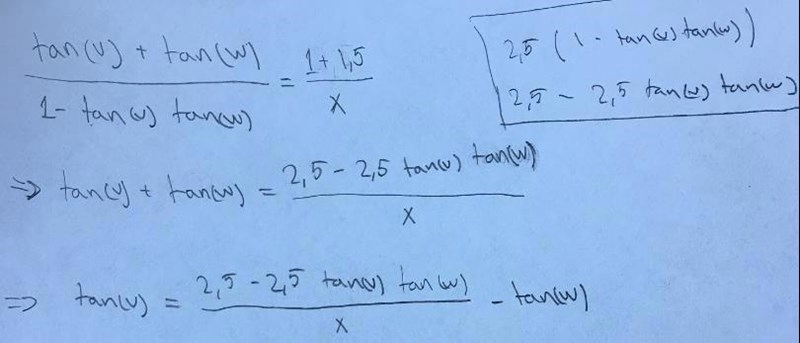 tan(v) + tan(w) / 1 - tan(v) tan(w) = 1+1,5 / x
2,5 (1 - tan(v) tan(w))
2,5 - 2,5 tan(v) tan(w)
=> tan(v) + tan(w) = 2,5 - 2,5 tan(v) tan(w) / x
=> tan(v) = 2,5 - 2,5 tan(v) tan(w) / x - tan(w)